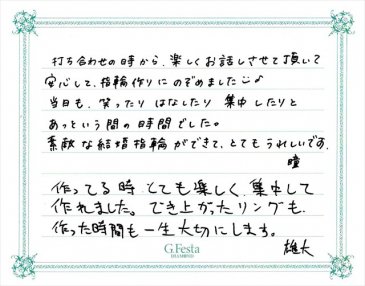 打ち合わせの時から、楽しくお話しさせて頂いて
安心して、指輪作りにのぞめました♪
当日も、笑ったり はなしたり 集中 したりと
あっという間の時間でした。
素敵な結婚指輪ができて、とてもうれしいです。
瞳
作ってる時とても楽しく、集中して
作れました。でき上がったリングも、
作った時間も一生大切にします。
雄大
G.Festa
DIAMOND